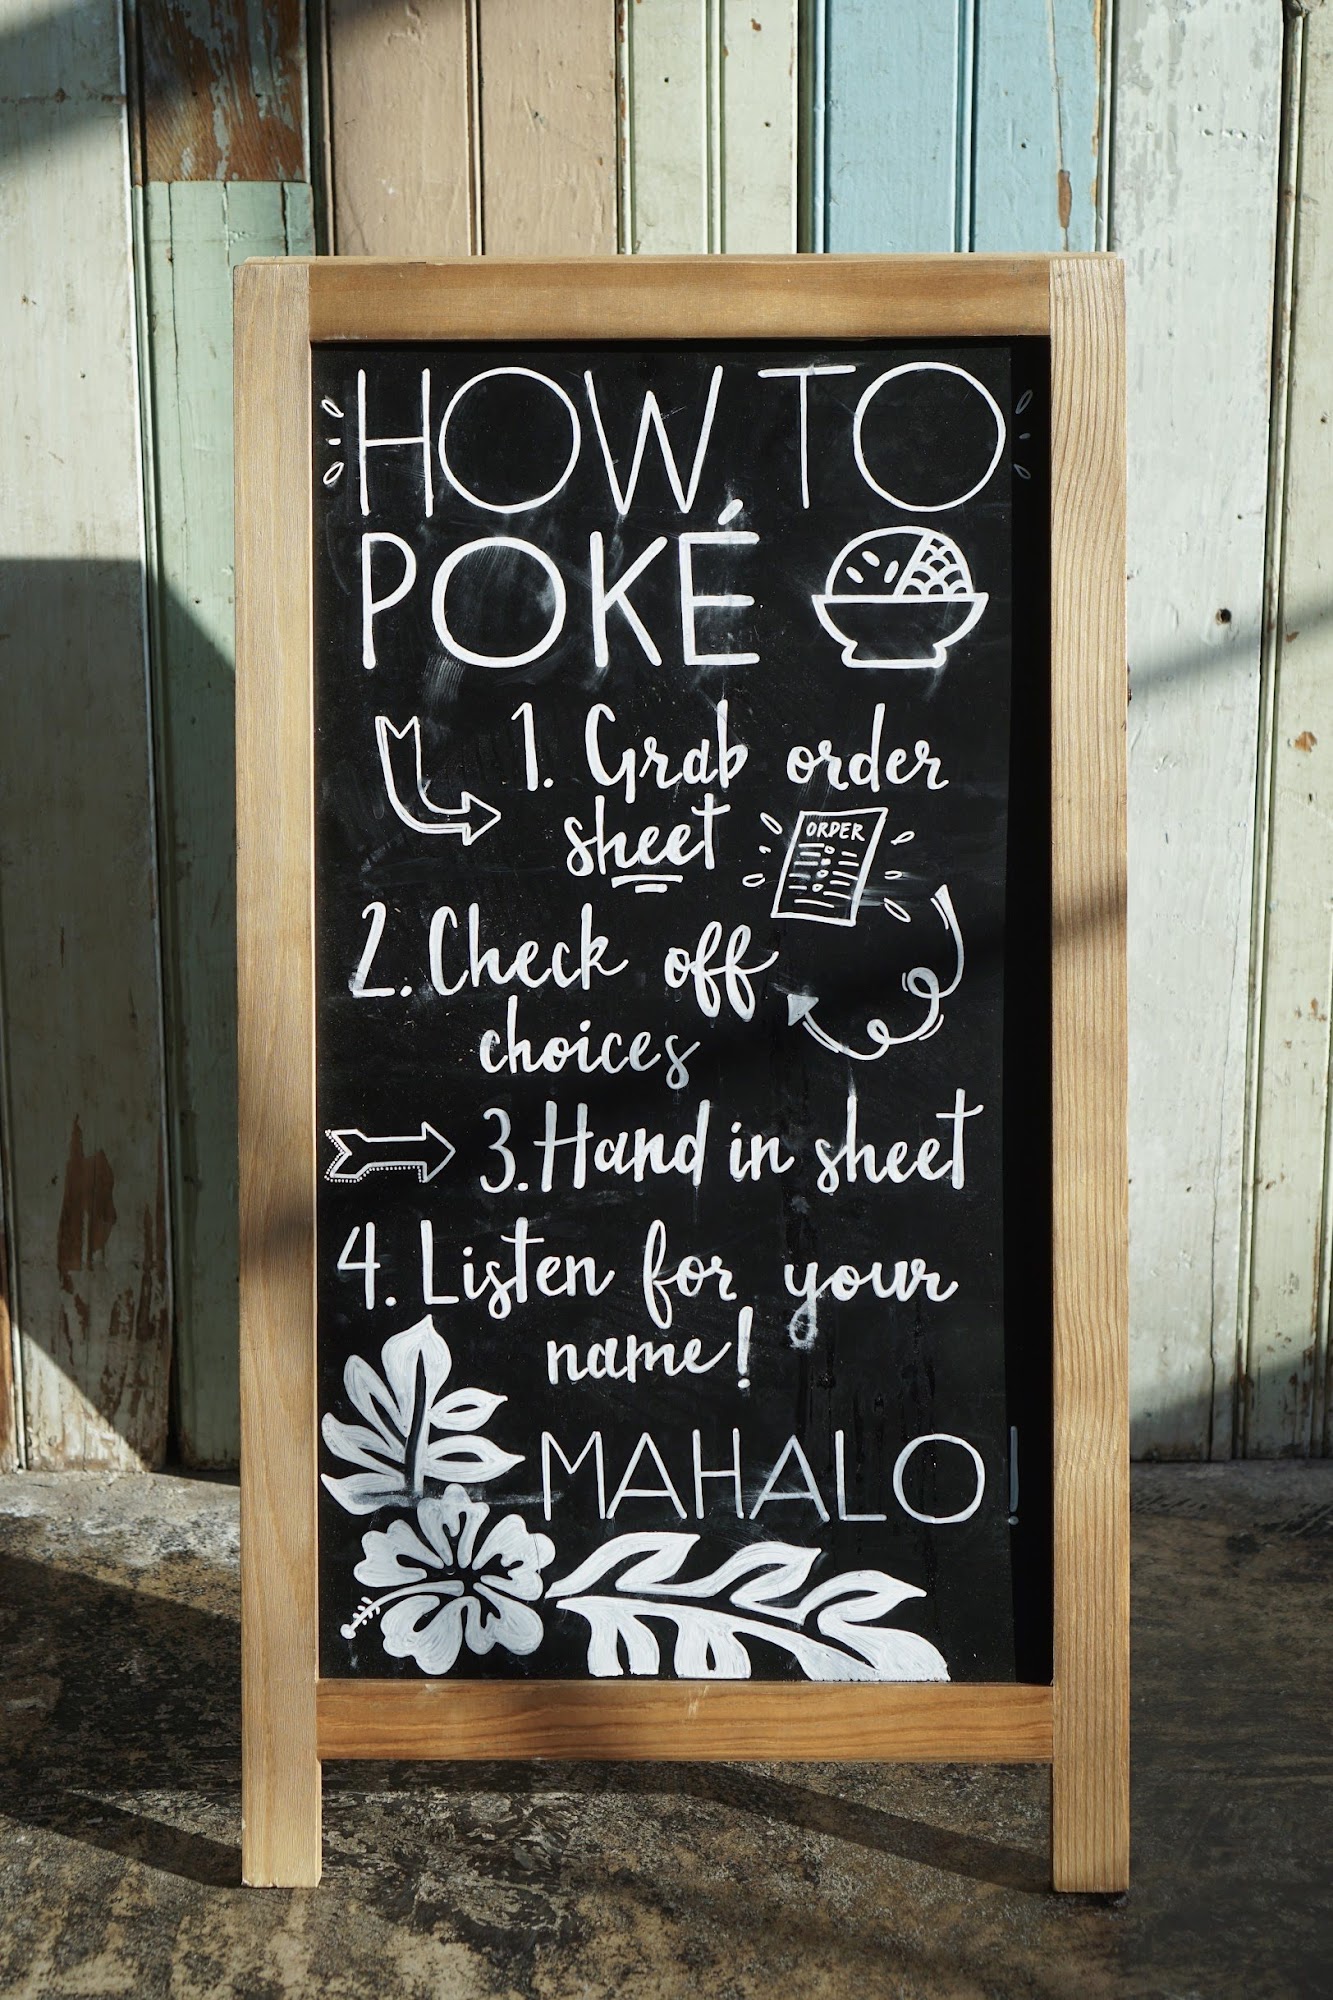 HOW TO
POKÉ
1. Grab order
sheet
ORDER
2. Check off
choices
3. Hand in sheet
4. Listen for your
name!
MAHALO!